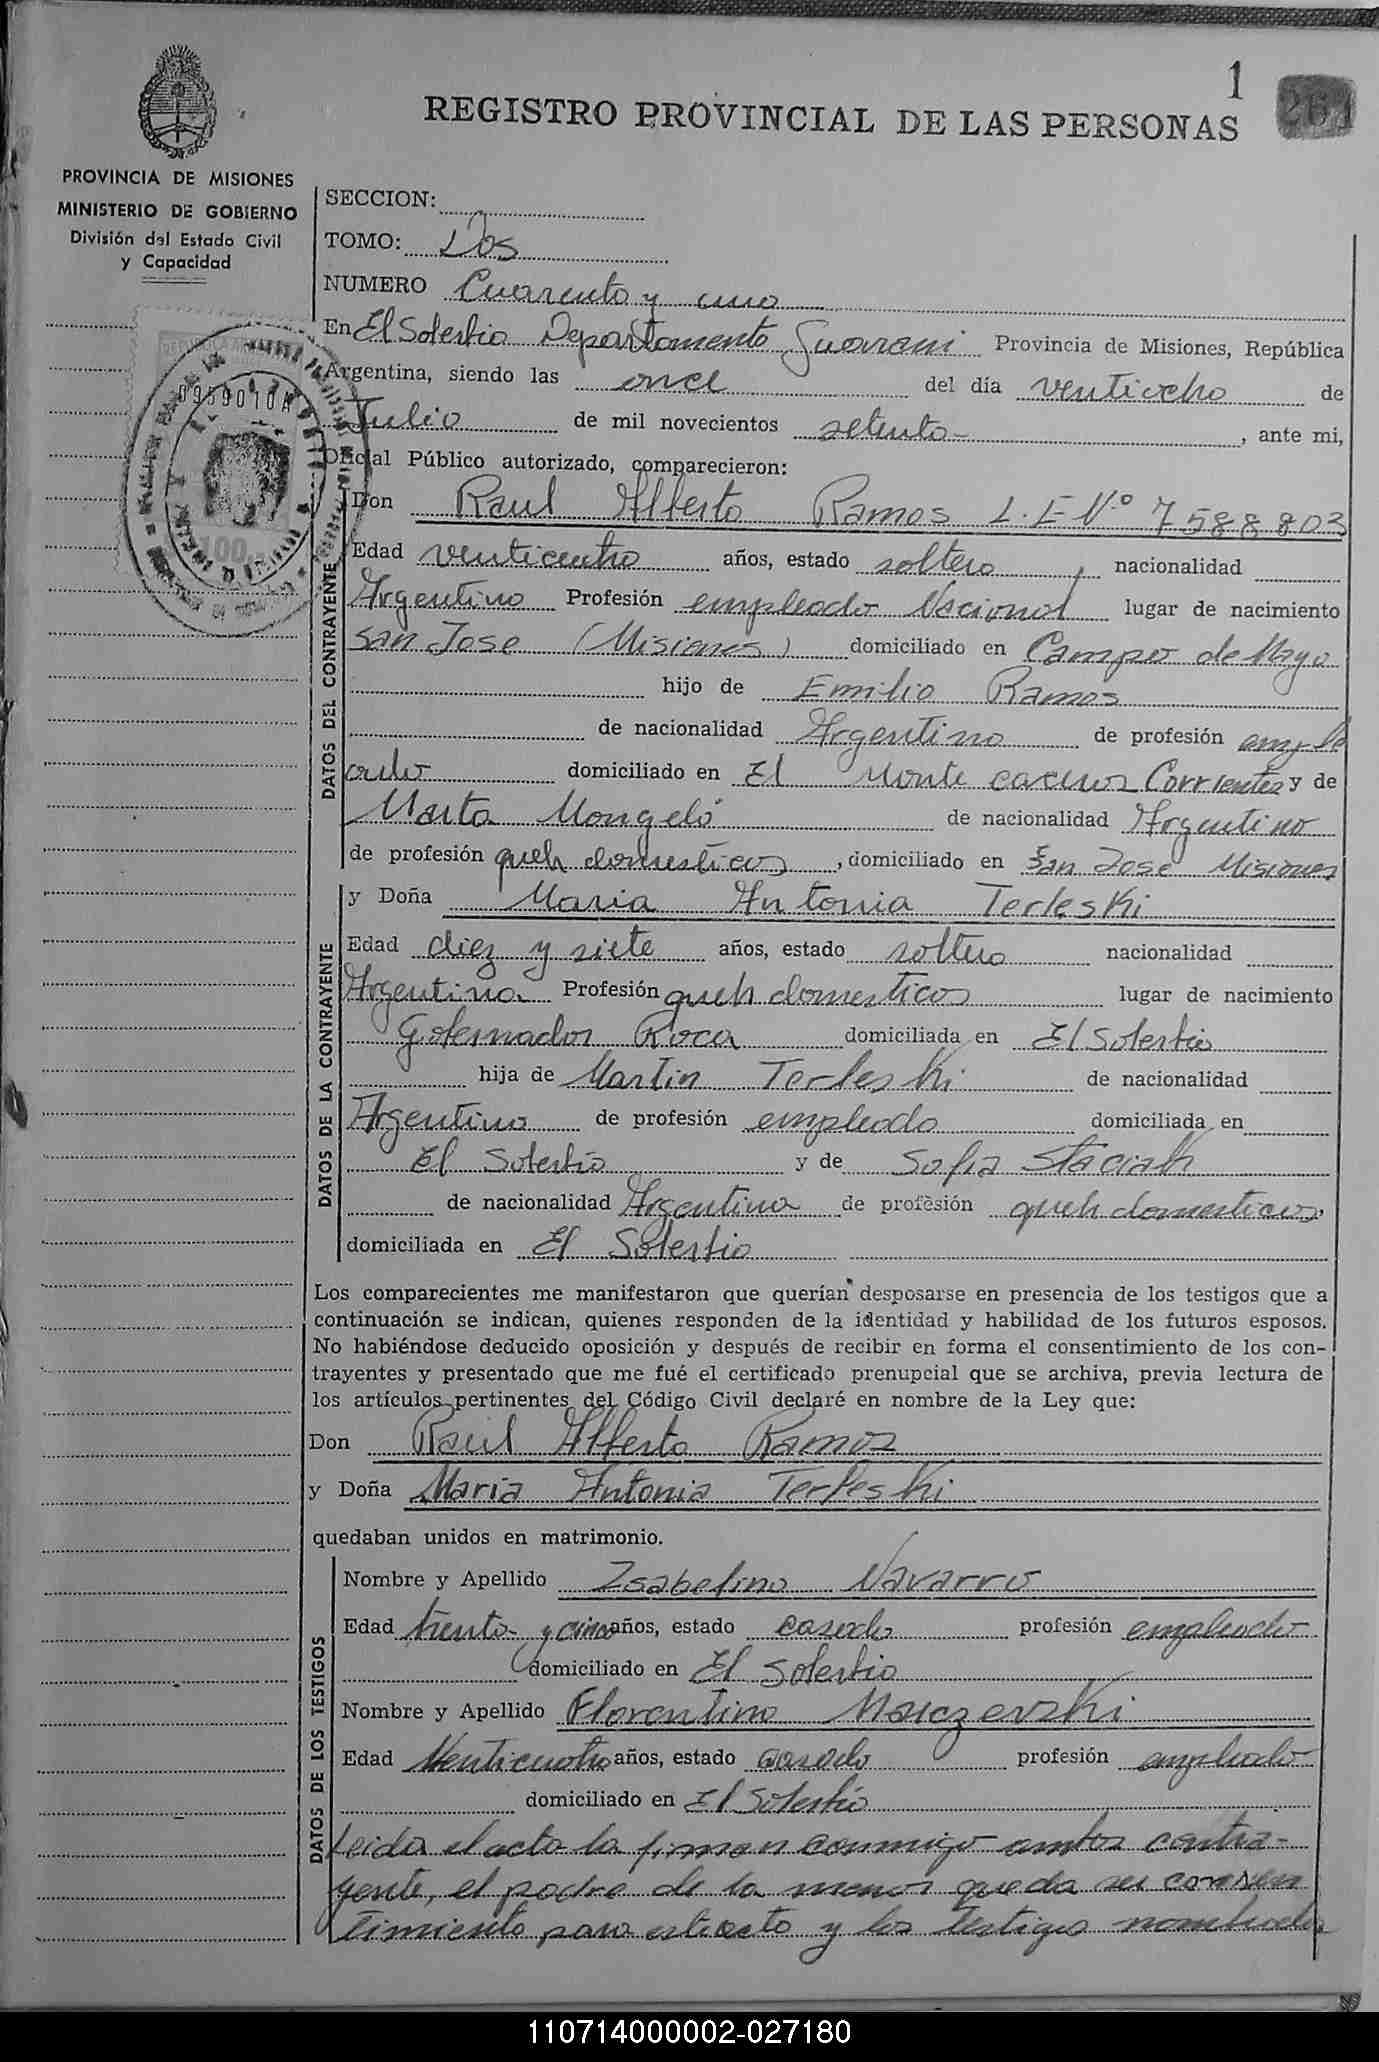 1
261
REGISTRO PROVINCIAL DE LAS PERSONAS
PROVINCIA DE MISIONES
MINISTERIO DE GOBIERNO
División del Estado Civil
y Capacidad
SECCION:
TOMO: Dos
NUMERO Cuarenta y uno
En El Soberbio Departamento Guarani Provincia de Misiones, República
Argentina, siendo las once del día ventiocho de
Julio de mil novecientos setenta- , ante mi,
Oficial Público autorizado, comparecieron:
0959010A
100
DATOS DEL CONTRAYENTE
Don Raul Alberto Ramos L.E Nº 7588803
Edad venticuatro años, estado soltero, nacionalidad
Argentino Profesión empleado Nacional lugar de nacimiento
San Jose (Misiones) domiciliado en Campo de Mayo
hijo de Emilio Ramos
de nacionalidad Argentino de profesión emple
ado domiciliado en El Monte caceros Corrientes y de
Marta Mongeló de nacionalidad Argentino
de profesión queh domesticos, domiciliado en San Jose Misiones
DATOS DE LA CONTRAYENTE
y Doña Maria Antonia Terleski
Edad diez y siete años, estado soltera nacionalidad
Argentina Profesión queh domesticos lugar de nacimiento
Gobernador Roca domiciliada en El Soberbio
hija de Martin Terleski de nacionalidad
Argentino de profesión empleado domiciliada en
El Soberbio y de Sofia Staciak
de nacionalidad Argentina de profesión queh domesticos,
domiciliada en El Soberbio
Los comparecientes me manifestaron que querían desposarse en presencia de los testigos que a
continuación se indican, quienes responden de la identidad y habilidad de los futuros esposos.
No habiéndose deducido oposición y después de recibir en forma el consentimiento de los con-
trayentes y presentado que me fué el certificado prenupcial que se archiva, previa lectura de
los artículos pertinentes del Código Civil declaré en nombre de la Ley que:
Don Raúl Alberto Ramos
y Doña Maria Antonia Terleski
quedaban unidos en matrimonio.
DATOS DE LOS TESTIGOS
Nombre y Apellido Isabelino Navarro
Edad trenta y cinco años, estado casado profesión empleado
domiciliado en El Soberbio
Nombre y Apellido Florentino Marczevski
Edad Venticuatro años, estado casado profesión empleado
domiciliado en El Soberbio
Leida el acta la firman conmigo ambos contra-
yente, el padre de la menor que da su consen
timiento para este acto y los testigos nombrados
110714000002-027180